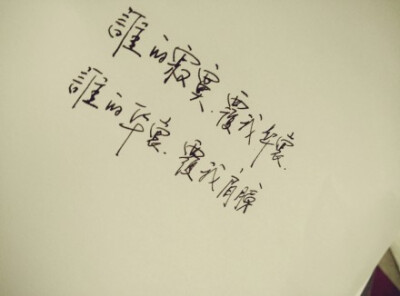 誰的寂寞.覆我华裳.
誰的华裳.覆我肩膀